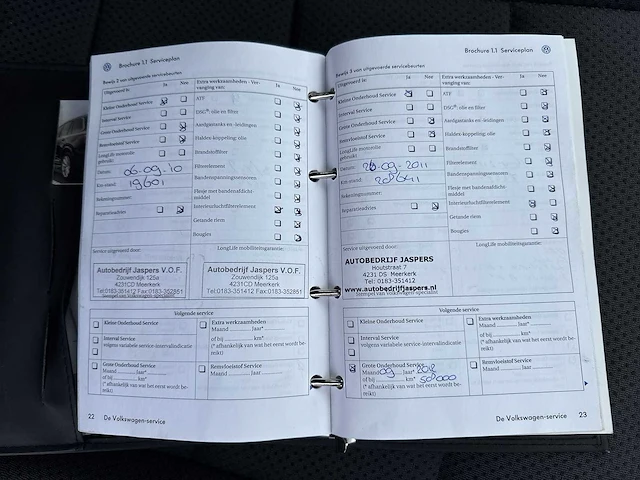 Brochure 1.1 Serviceplan
Bewijs 2 van uitgevoerde servicebeurten
Uitgevoerd is: Ja Nee
Extra werkzaamheden - Vervanging van: Ja Nee
Kleine Onderhoud Service
Interval Service
Grote Onderhoud Service
Remvloeistof Service
LongLife motorolie gebruikt
Datum: 06-09-10
Km-stand: 19601
Rekeningnummer:
Reparatieadvies
ATF
DSG®: olie en filter
Aardgastanks en -leidingen
Haldex-koppeling: olie
Brandstoffilter
Filterelement
Bandenspanningssensoren
Flesje met bandenafdichtmiddel
Interieurluchtfilterelement
Getande riem
Bougies
Service uitgevoerd door:
LongLife mobiliteitsgarantie:
Autobedrijf Jaspers V.O.F.
Zouwendijk 125a
4231CD Meerkerk
Tel:0183-351412 Fax:0183-352851
Stempel van Volkswagen-specialist
Autobedrijf Jaspers V.O.F.
Zouwendijk 125a
4231CD Meerkerk
Tel:0183-351412 Fax:0183-352851
Volgende service
Kleine Onderhoud Service
Interval Service
volgens variabele service-intervalindicatie
Grote Onderhoud Service
Maand ........ Jaar ........
of bij ........ km*
(* afhankelijk van wat het eerst wordt bereikt)
Extra werkzaamheden
Maand ........ Jaar*
of bij ........ km*
(* afhankelijk van wat het eerst wordt bereikt)
Remvloeistof Service
Maand ........ Jaar ........
22 De Volkswagen-service
Brochure 1.1 Serviceplan
Bewijs 3 van uitgevoerde servicebeurten
Uitgevoerd is: Ja Nee
Extra werkzaamheden - Vervanging van: Ja Nee
Kleine Onderhoud Service
Interval Service
Grote Onderhoud Service
Remvloeistof Service
LongLife motorolie gebruikt
Datum: -09-2011
Km-stand:
Rekeningnummer:
Reparatieadvies
ATF
DSG®: olie en filter
Aardgastanks en -leidingen
Haldex-koppeling: olie
Brandstoffilter
Filterelement
Bandenspanningssensoren
Flesje met bandenafdichtmiddel
Interieurluchtfilterelement
Getande riem
Bougies
Service uitgevoerd door:
LongLife mobiliteitsgarantie:
AUTOBEDRIJF JASPERS
Houtstraat 7
4231 DS Meerkerk
Tel: 0183-351412
www.autobedrijfjaspers.nl
Stempel van Volkswagen-specialist
Volgende service
Kleine Onderhoud Service
Interval Service
volgens variabele service-intervalindicatie
Grote Onderhoud Service
Maand 09 Jaar 2012
of bij 50000 km*
(* afhankelijk van wat het eerst wordt bereikt)
Extra werkzaamheden
Maand ........ Jaar*
of bij ........ km*
(* afhankelijk van wat het eerst wordt bereikt)
Remvloeistof Service
Maand ........ Jaar ........
De Volkswagen-service 23